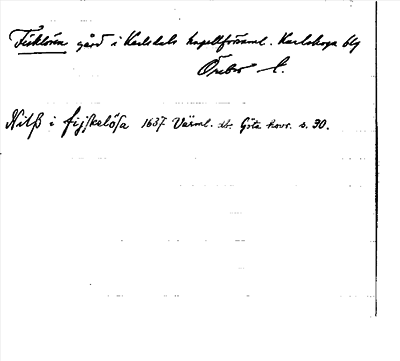 Fisklösen gård i Karlsdals kapellförsaml. Karlskoga blg
Örebro l.
Nilß i fijskelösa 1637 Värml. dr. Göta hovr. s. 30.